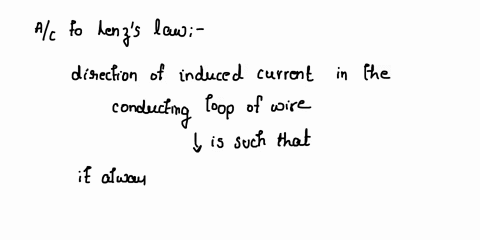 A/c to Lenz's law:-
direction of induced current in the
conducting loop of wire
↓ is such that
it alway